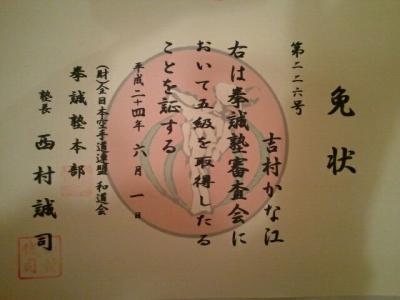 免状
第二二六号
吉村かな江
右は拳誠塾審査会に
おいて五級を取得したる
ことを証する
平成二十四年 六月 一日
(財)全日本空手道連盟 和道会
拳誠塾本部
塾長 西村誠司